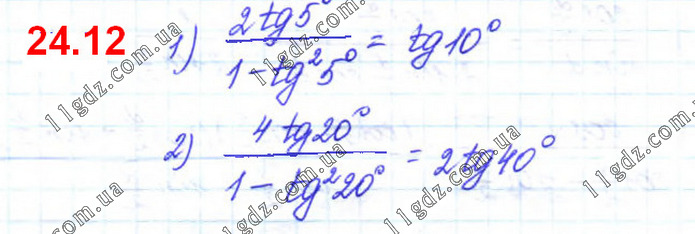 24.12
1) \frac{2 tg 5°}{1 - tg² 5°} = tg 10°
2) \frac{4 tg 20°}{1 - tg² 20°} = 2 tg 40°
11gdz.com.ua
11gdz.com.ua
11gdz.com.ua
11gdz.com.ua
11gdz.com.ua